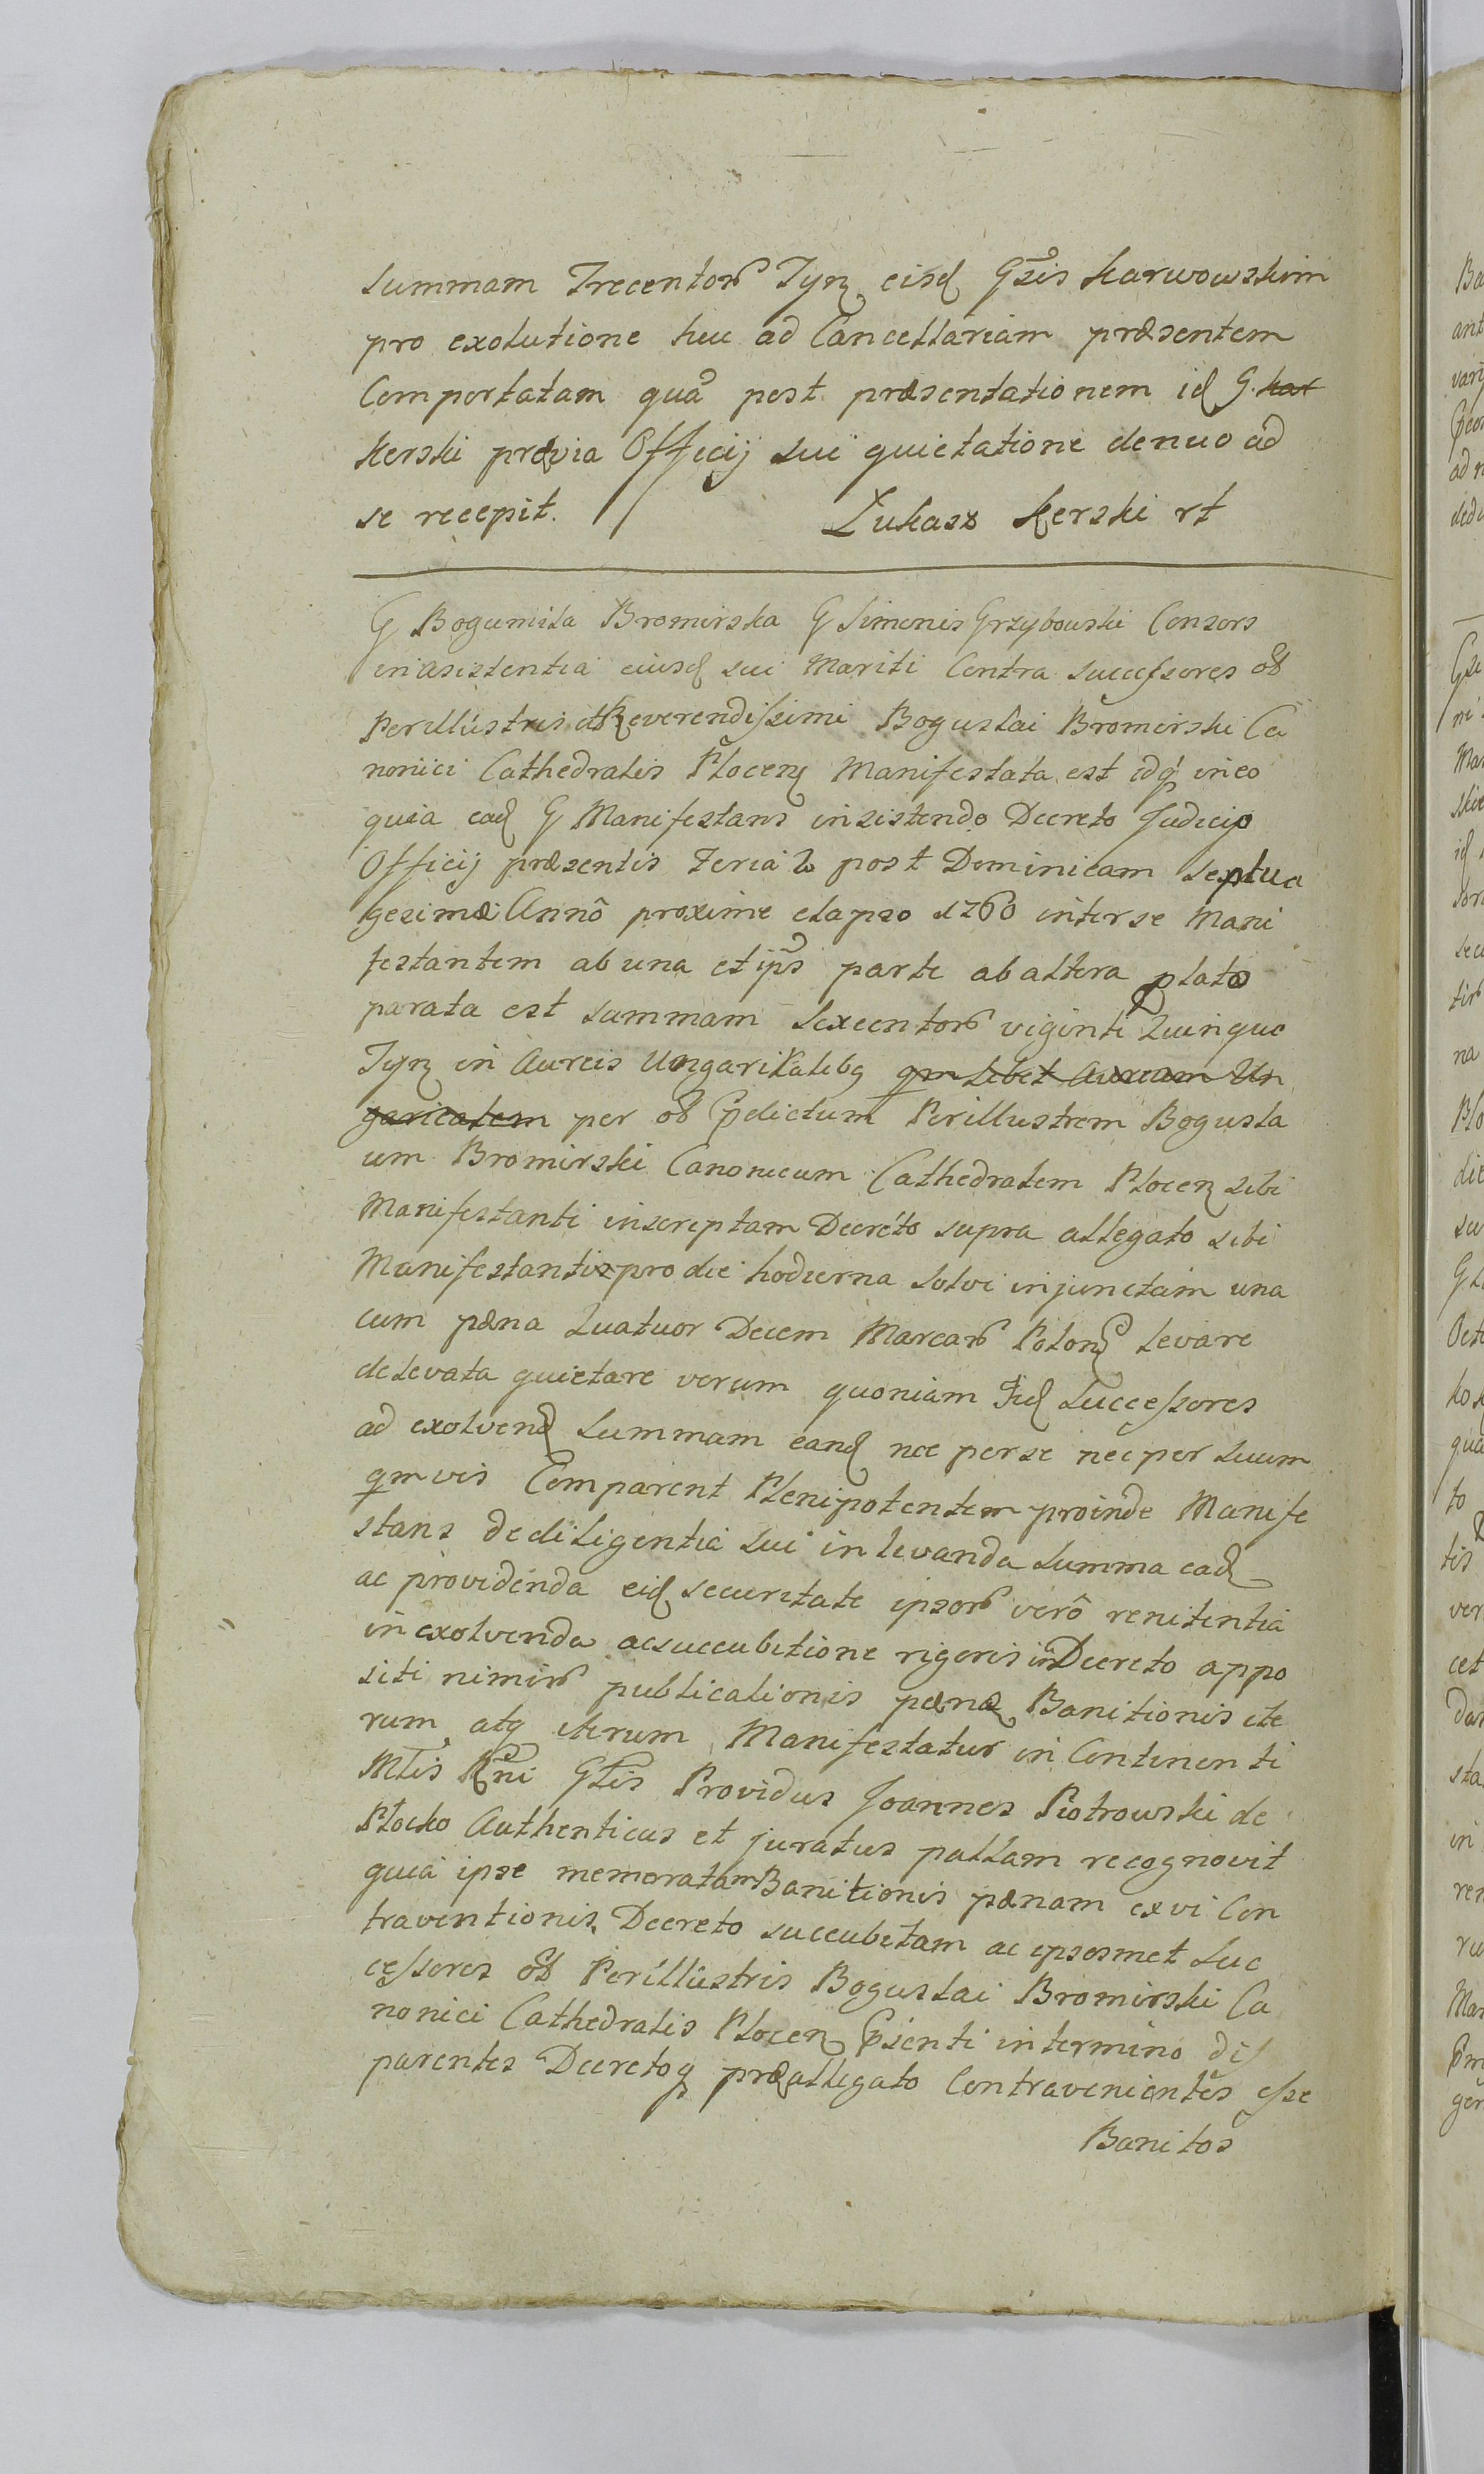 summam Trecentor Tyn eisd Gsis Karwowskim
pro exolutione huc ad Cancellariam præsentem
Comportatam quã post præsentationem id G. Kar
Kerski prævia Officij sui quietatione denuo ad
se recepit. Łukasz Kerski rt
G Bogumiła Bromirska G Simonis Grzybowski Consors
in asistentia eiusd sui Mariti Contra successores ob
Perillustris et Reverendissimi Boguslai Bromirski Ca
nonici Cathedralis Plocen Manifestata est idq in eo
quia ead G Manifestans insistendo Decreto Judicij
Officij præsentis Feria 2 post Dominicam Septua
gesimæ Annô proxime elapso 1760 inter se Mani
festantem ab una et ips parte ab altera plato
parata est summam sexcentor viginti Quinque
Tyn in Aureis Ungarikalibq qmlibet Aureum Un
garicalem per ob Pdictum Perillustrem Bogusla
um Bromirski Canonicum Cathedralem Plocen sibi
Manifestanti inscriptam Decreto supra allegato sibi
Manifestanti pro die hodierna solvi injunctam una
cum pæna Quatuor Decem Marcar Polon levare
de levata quietare verum quoniam iid Successores
ad exolvend Summam eand nec per se nec per suum
qmvis Comparent Plenipotentem proinde Manife
stans de diligentia sui in levanda Summa ead
ac providenda eid securitate ipsor verô renitentia
in exolvenda ac succubitione rigoris in Decreto appo
siti nimir publicationis pænæ Banitionis ite
rum atq iterum Manifestatur in Continenti
Mtis Rni Gtis Providus Joannes Piotrowski de
Płocko Authenticus et juratus pallam recognovit
quia ipse memoratam Banitionis pænam ex vi Con
traventionis Decreto succubitam ac ipsosmet Suc
cessores ob Perillustris Boguslai Bromirski Ca
nonici Cathedralis Plocen Psenti in termino dis
parentes Decretoq præallegato Contravenientes esse
Banitos